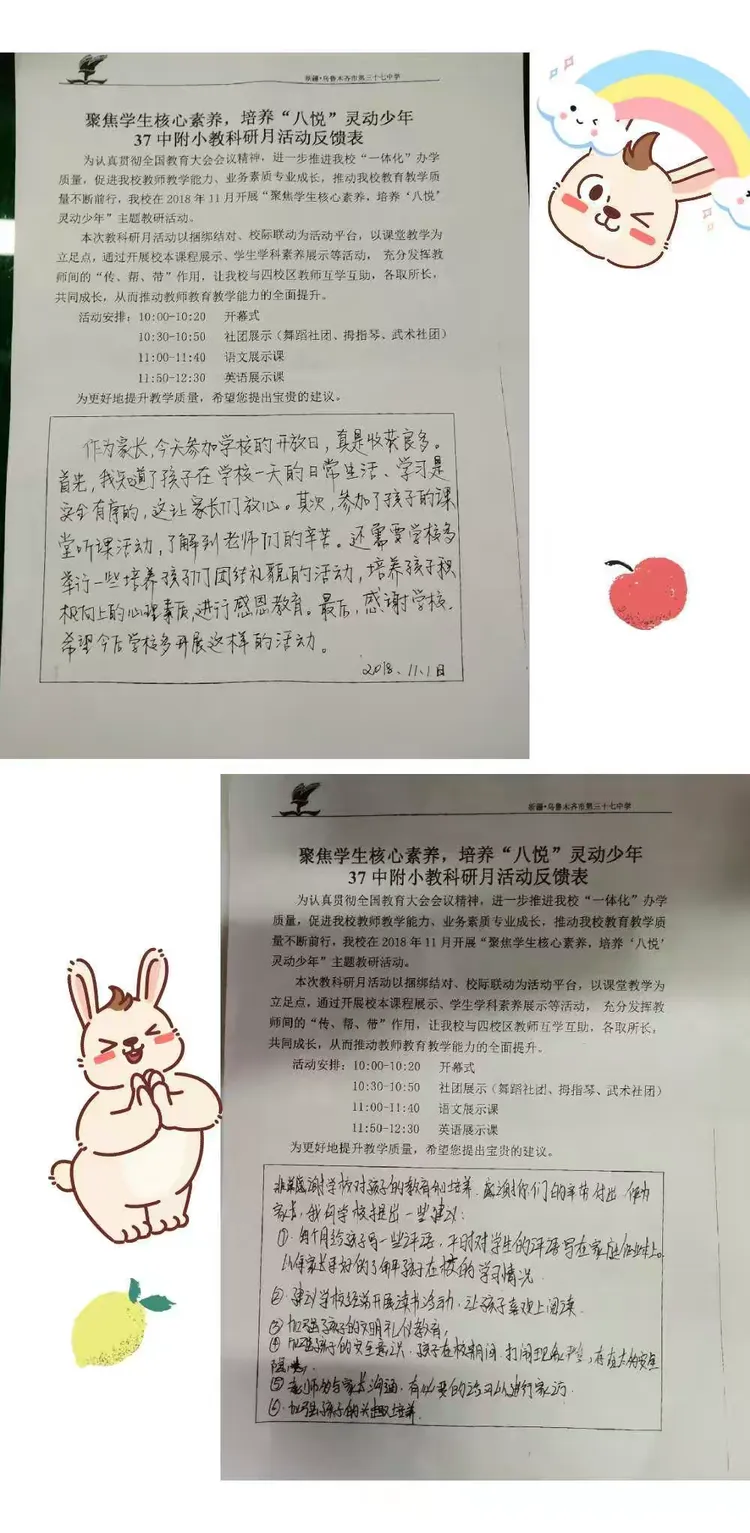 新疆·乌鲁木齐市第三十七中学
聚焦学生核心素养，培养“八悦”灵动少年
37中附小教科研月活动反馈表
为认真贯彻全国教育大会会议精神，进一步推进我校“一体化”办学
质量，促进我校教师教学能力、业务素质专业成长，推动我校教育教学质
量不断前行，我校在2018年11月开展“聚焦学生核心素养，培养‘八悦’
灵动少年”主题教研活动。
本次教科研月活动以捆绑结对、校际联动为活动平台，以课堂教学为
立足点，通过开展校本课程展示、学生学科素养展示等活动， 充分发挥教
师间的“传、帮、带”作用，让我校与四校区教师互学互助，各取所长，
共同成长，从而推动教师教育教学能力的全面提升。
活动安排：10:00-10:20 开幕式
10:30-10:50 社团展示（舞蹈社团、拇指琴、武术社团）
11:00-11:40 语文展示课
11:50-12:30 英语展示课
为更好地提升教学质量，希望您提出宝贵的建议。
作为家长，今天参加学校的开放日，真是收获良多。
首先，我知道了孩子在学校一天的日常生活、学习是
安全有序的，这让家长们放心。其次，参加了孩子的课
堂听课活动，了解到老师们的辛苦。还需要学校多
举行一些培养孩子们团结礼貌的活动，培养孩子积
极向上的心理素质，进行感恩教育。最后，感谢学校，
希望今后学校多开展这样的活动。
2018.11.1日
新疆·乌鲁木齐市第三十七中学
聚焦学生核心素养，培养“八悦”灵动少年
37中附小教科研月活动反馈表
为认真贯彻全国教育大会会议精神，进一步推进我校“一体化”办学
质量，促进我校教师教学能力、业务素质专业成长，推动我校教育教学质
量不断前行，我校在2018年11月开展“聚焦学生核心素养，培养‘八悦’
灵动少年”主题教研活动。
本次教科研月活动以捆绑结对、校际联动为活动平台，以课堂教学为
立足点，通过开展校本课程展示、学生学科素养展示等活动， 充分发挥教
师间的“传、帮、带”作用，让我校与四校区教师互学互助，各取所长，
共同成长，从而推动教师教育教学能力的全面提升。
活动安排：10:00-10:20 开幕式
10:30-10:50 社团展示（舞蹈社团、拇指琴、武术社团）
11:00-11:40 语文展示课
11:50-12:30 英语展示课
为更好地提升教学质量，希望您提出宝贵的建议。
非常感谢学校对孩子的教育和培养．感谢你们的辛苦付出 作为
家长，我向学校提出一些建议：
①．每个月给孩子写一些评语，平时对学生的评语写在家庭作业本上。
以便家长更好的了解孩子在校的学习情况．
② 建议学校经常开展读书活动，让孩子喜欢上阅读．
③加强孩子的文明礼仪教育，
④ 加强孩子的安全意识．孩子在校期间．打闹现象严重，存在大的安全
隐患．
⑤ 老师多与家长沟通，有必要的话可以进行家访．
⑥．加强孩子的兴趣培养．